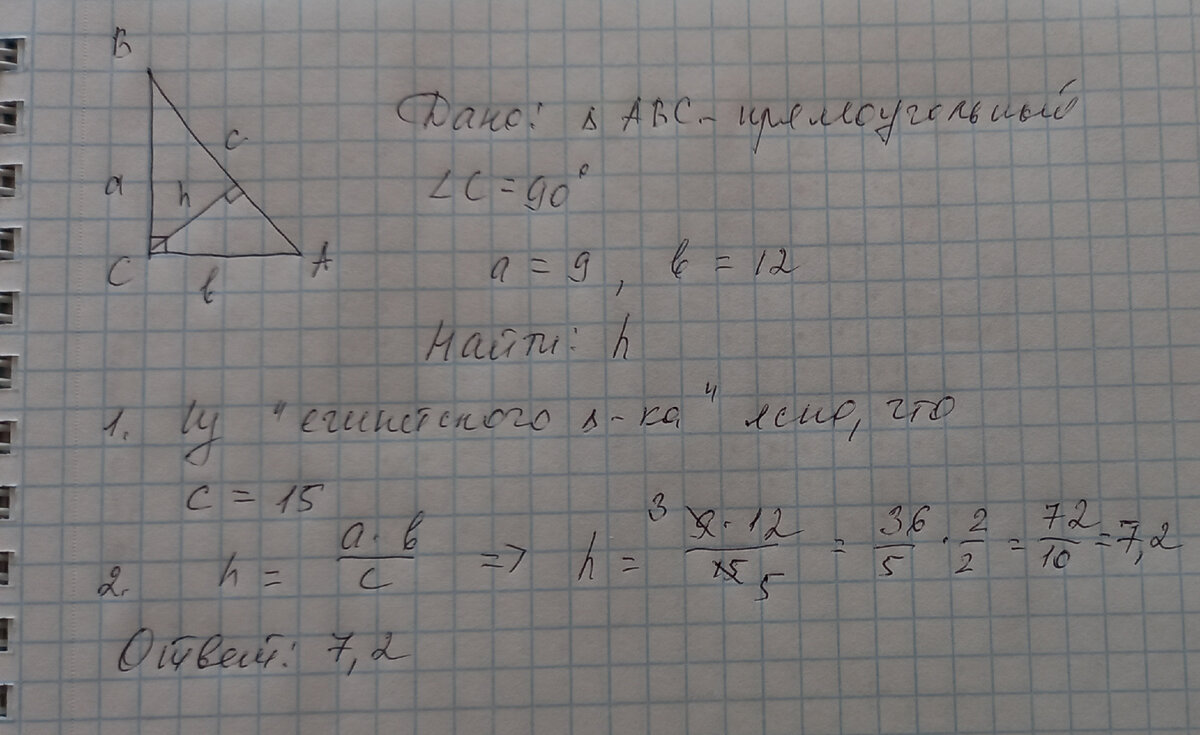 B
Дано: Δ ABC - прямоугольный
c
a
h
∠C = 90°
C
A
b
a = 9, b = 12
Найти: h
1. Из "египетского Δ-ка" ясно, что
c = 15
2. h = a·b/c => h = 3 9·12/15 5 = 36/5 · 2/2 = 72/10 = 7,2
Ответ: 7,2